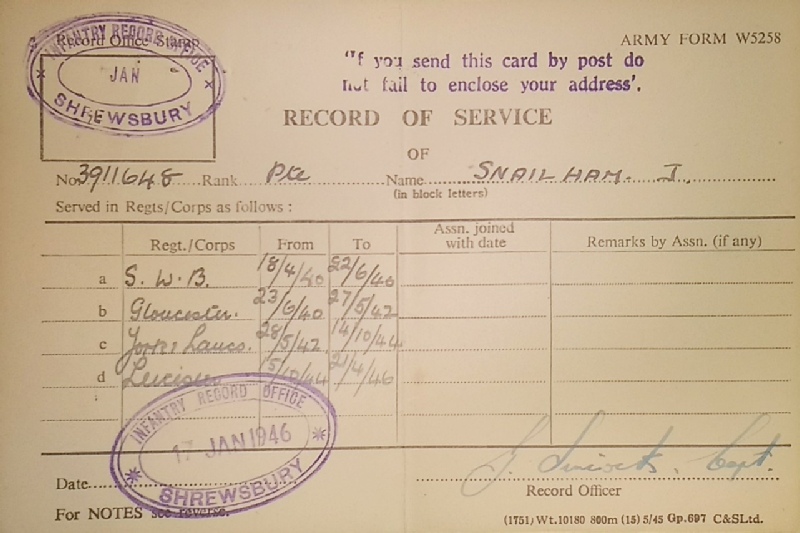 INFANTRY RECORD OFFICE
Record Office Stamp
JAN
SHREWSBURY
ARMY FORM W5258
"If you send this card by post do
not fail to enclose your address'.
RECORD OF SERVICE
OF
No. 3911648 Rank Pte Name SNAILHAM. J.
(in block letters)
Served in Regts/Corps as follows :
Regt./Corps From To Assn. joined with date Remarks by Assn. (if any)
a S. W. B. 18/4/40 22/6/40
b Gloucester. 23/6/40 27/5/42
c Yorks Lancs. 28/5/42 14/10/44
d Leicester 15/10/44 2/4/46
INFANTRY RECORD OFFICE
17 JAN 1946
SHREWSBURY
Date
Capt.
Record Officer
For NOTES see reverse.
(1751) Wt.10180 800m (15) 5/45 Gp.697 C&SLtd.